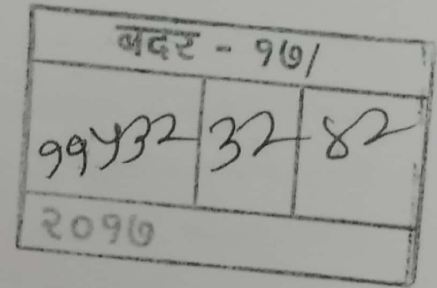 बदर - १७/
११५३२ ३२ ४२
२०१७